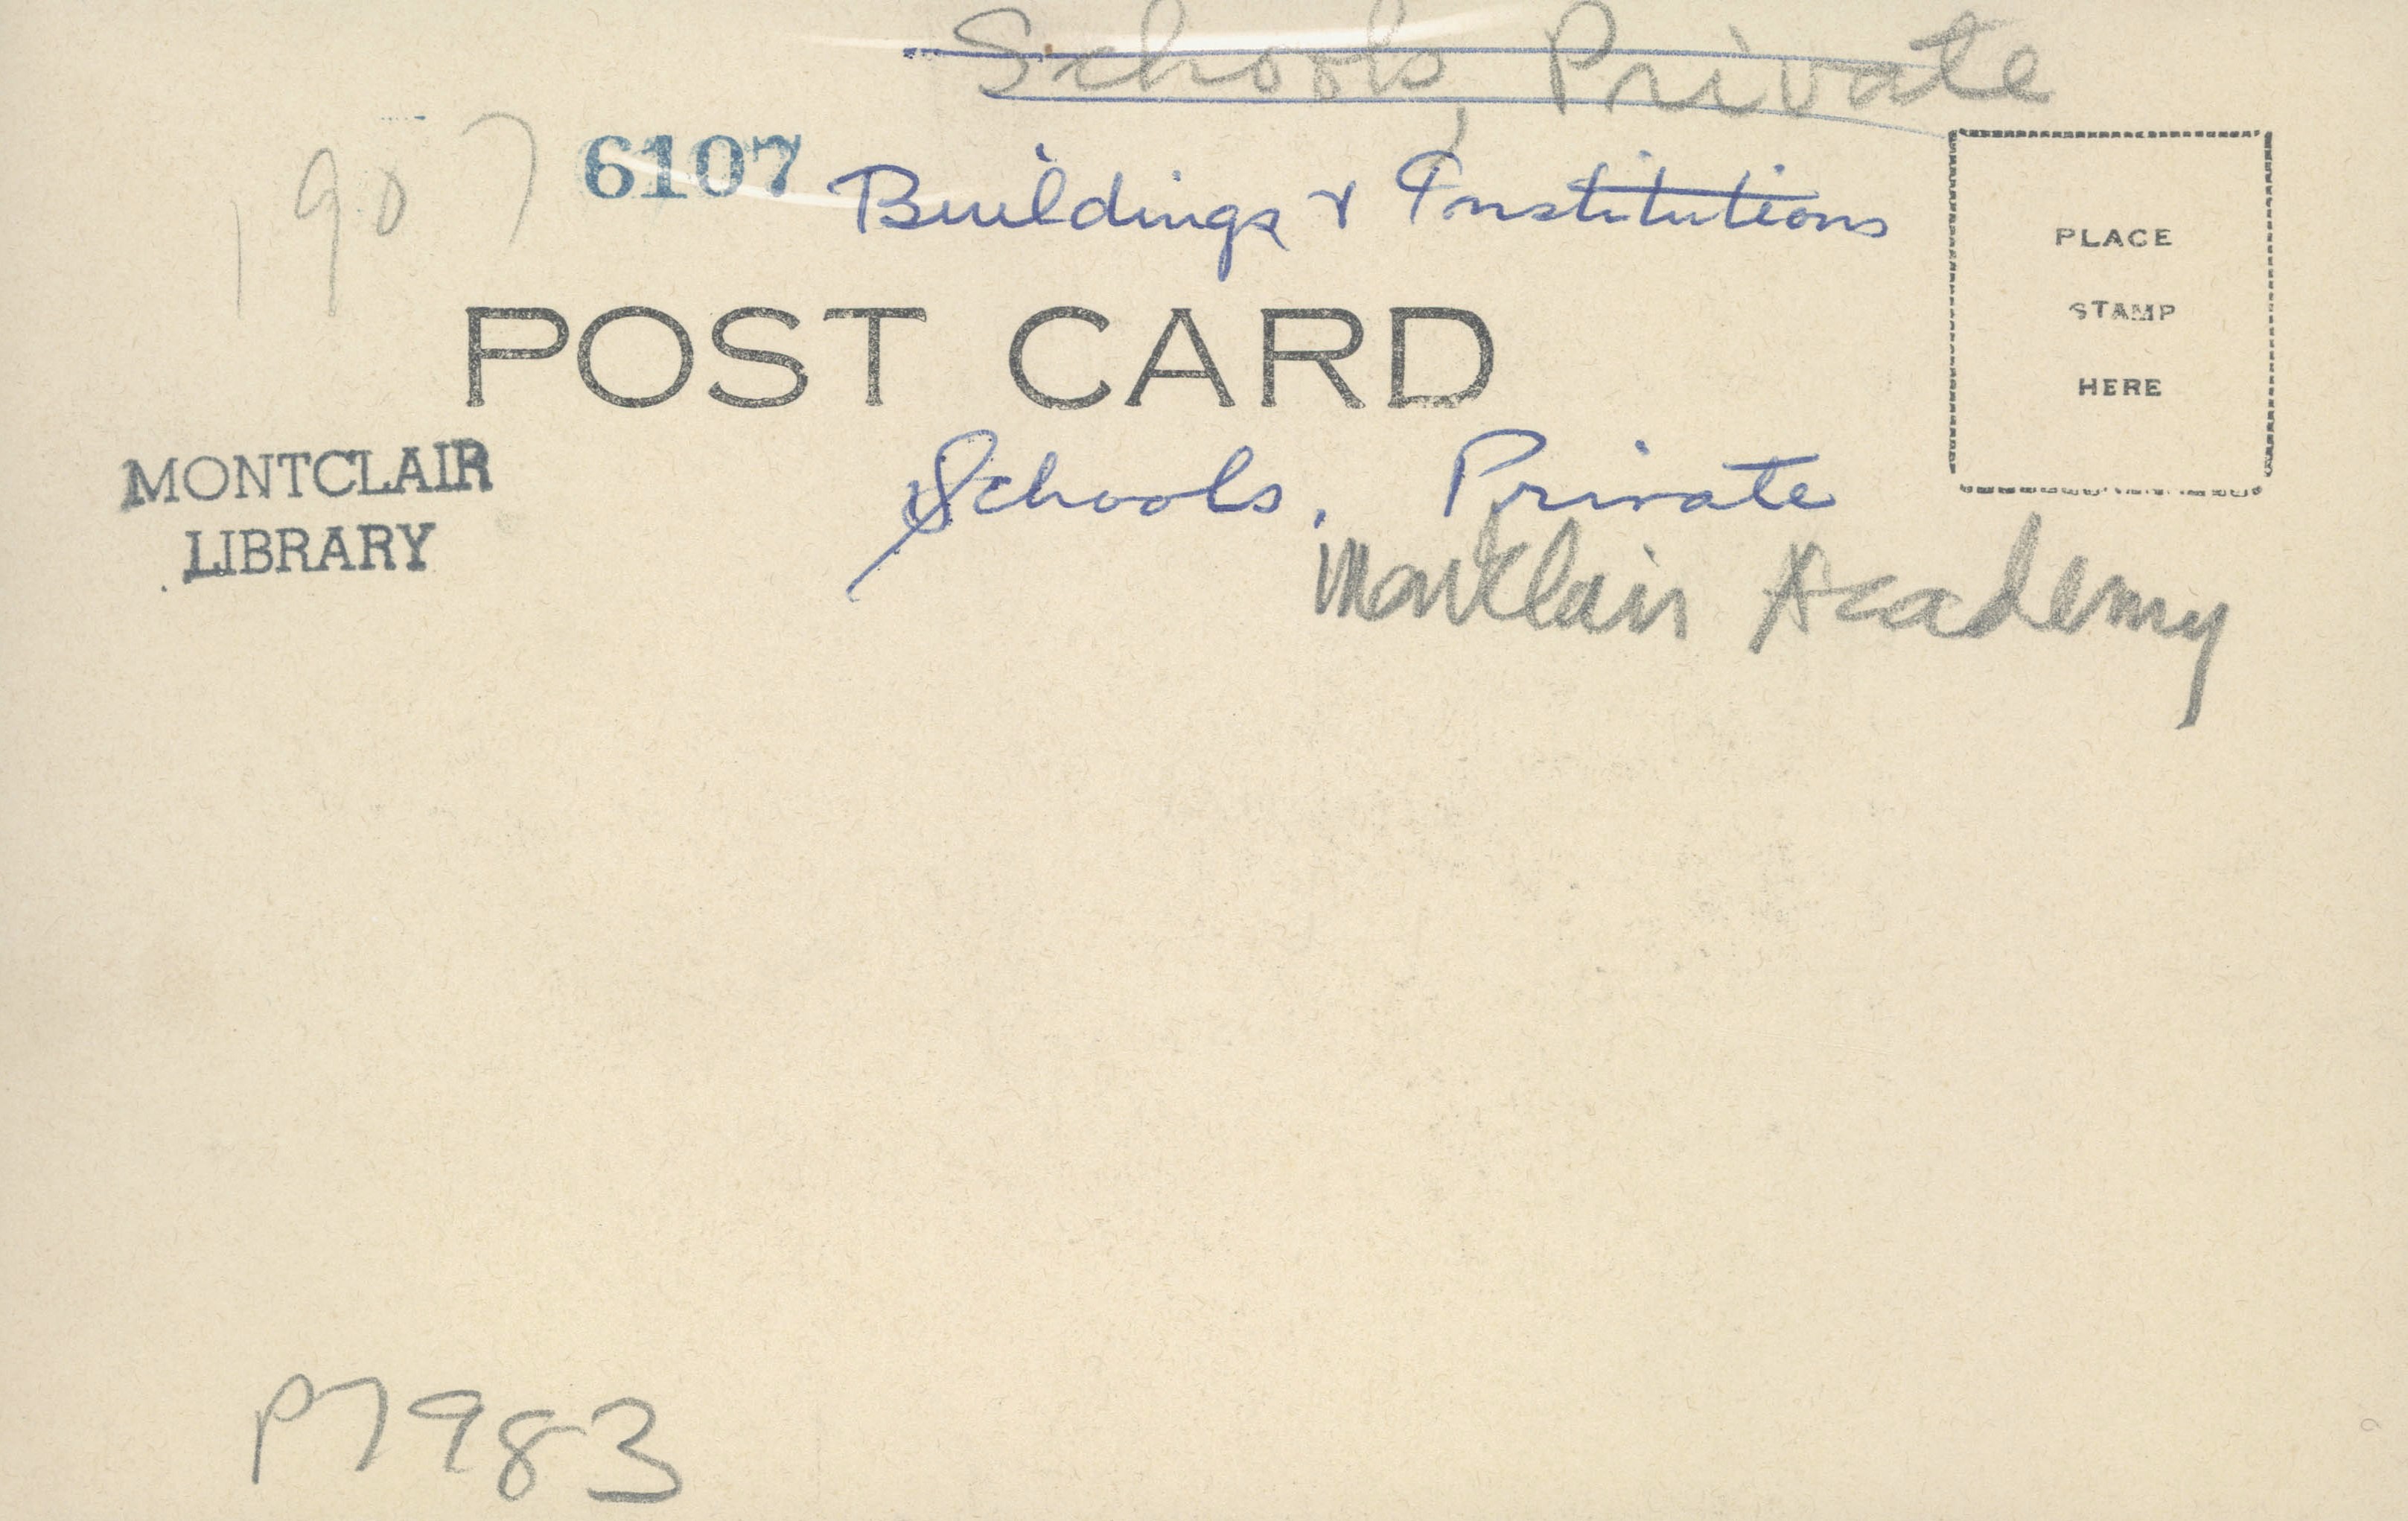 Schools, Private
1907 6107 Buildings & Institutions
POST CARD
PLACE
STAMP
HERE
MONTCLAIR
LIBRARY
Schools, Private
Montclair Academy
P7983